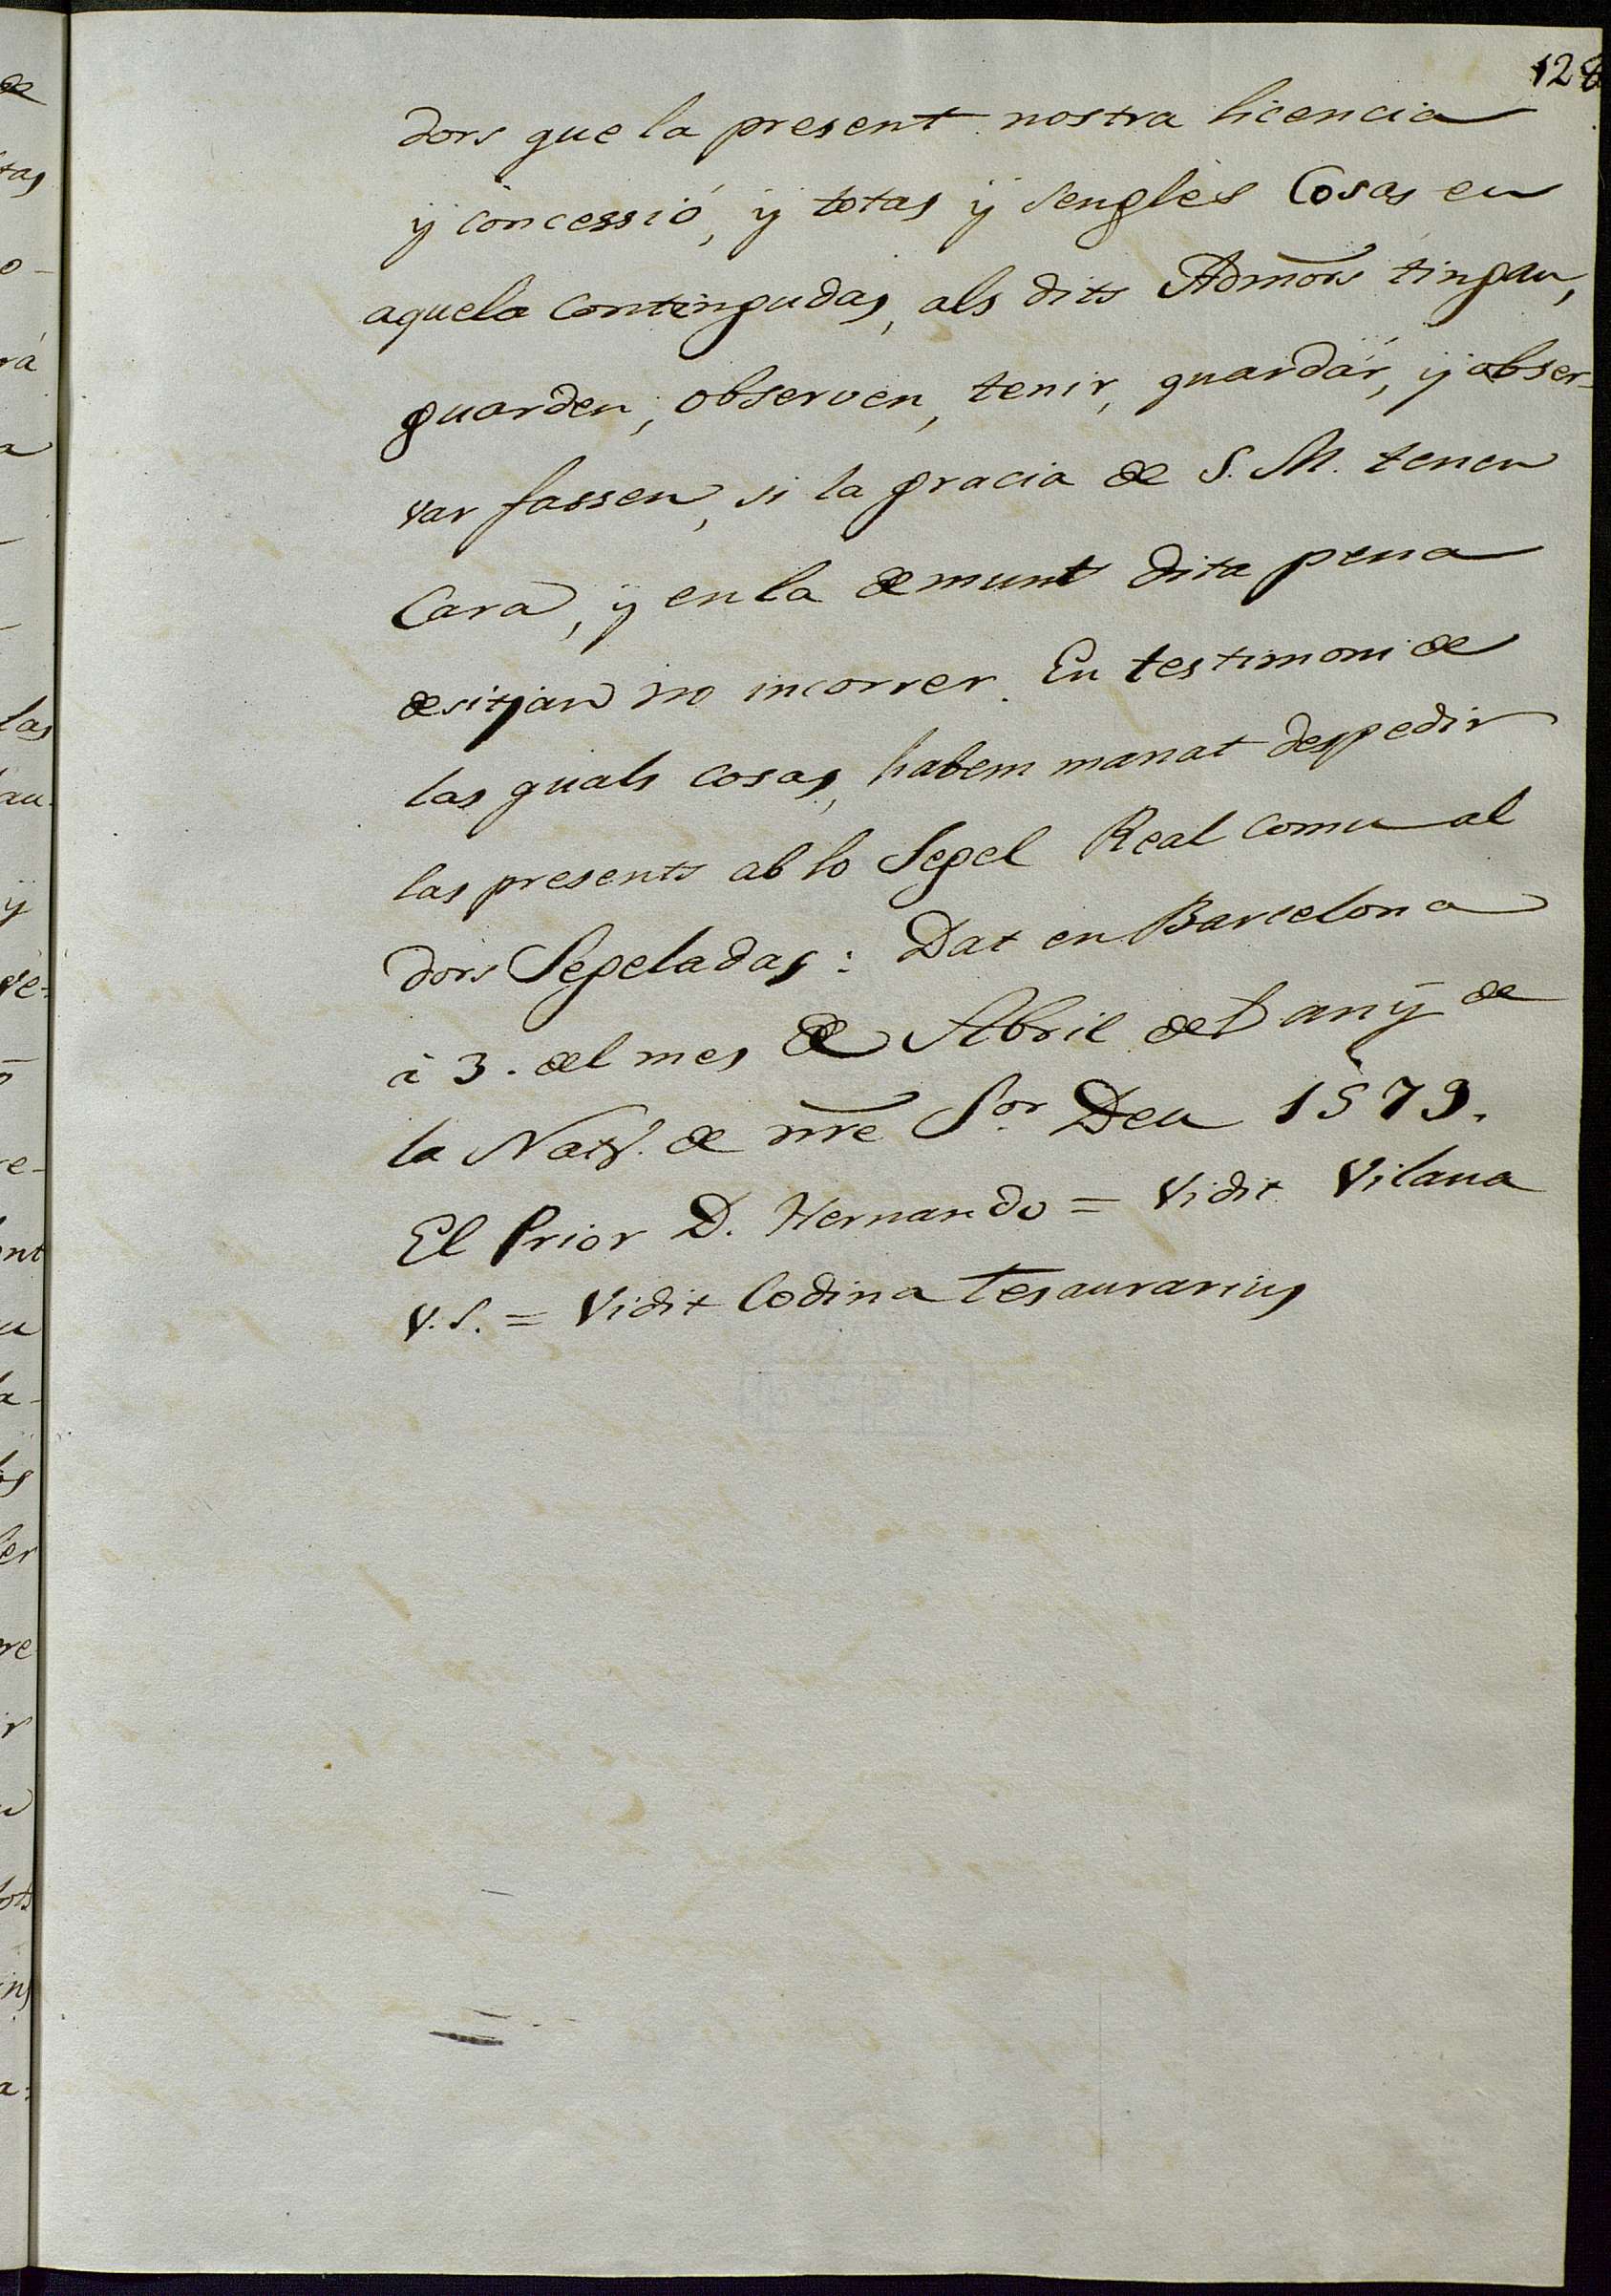 128
dors que la present nostra licencia
ÿ concessió, ÿ totas ÿ sengles Cosas en
aquela contingudas, als dits Admōrs tingan,
guarden, observen, tenir, guardár, ÿ obser-
var fassen, si la gracia de S. M. tenen
Cara, ÿ en la demunt dita pena
desitjan no incorrer. En testimoni de
las quals cosas, habem manat despedir
las presents ab lo Segel Real comu al
dors Segeladas: Dat en Barcelona
à 3. del mes de Abril del anÿ de
la Natt. de nr̄e Sor. Deu 1579.
El Prior D. Hernando = Vidit Vilana
V.S. = Vidit Codina Tesaurarius